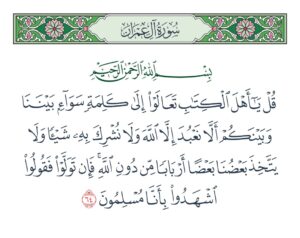 سُورَةُ آلِ عِمْرَانَ
بِسْمِ ٱللَّهِ ٱلرَّحْمَٰنِ ٱلرَّحِيمِ
قُلْ يَٰٓأَهْلَ ٱلْكِتَٰبِ تَعَالَوْا۟ إِلَىٰ كَلِمَةٍ سَوَآءٍۭ بَيْنَنَا
وَبَيْنَكُمْ أَلَّا نَعْبُدَ إِلَّا ٱللَّهَ وَلَا نُشْرِكَ بِهِۦ شَيْـًٔا وَلَا
يَتَّخِذَ بَعْضُنَا بَعْضًا أَرْبَابًا مِّن دُونِ ٱللَّهِ ۚ فَإِن تَوَلَّوْا۟ فَقُولُوا۟
ٱشْهَدُوا۟ بِأَنَّا مُسْلِمُونَ ٦٤